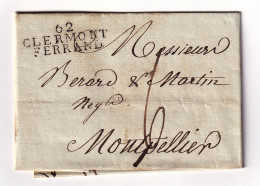 62
CLERMONT
FERRAND
Messieurs
Berard & Martin
Negts
Montpellier